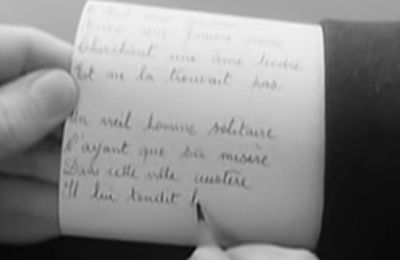 Cherchant une âme tendre
Et ne la trouvait pas.
Un vieil homme solitaire
N'ayant que sa misère
Dans cette ville austère
Il lui tendit